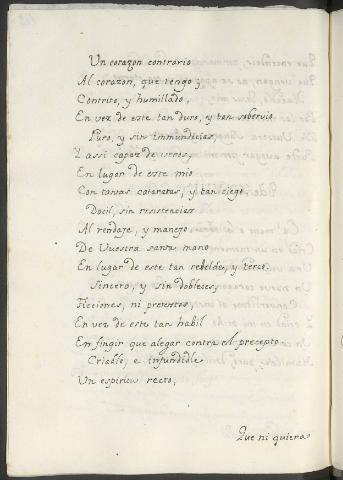 Un corazon contrario
Al corazon, que tengo,
Contrito, y humillado,
En vez de este tan duro, y tan sobervio
Puro, y sin immundicias,
Y assi capaz de veros,
En lugar de este mio
Con tantas cataratas, y tan ciego.
Docil, sin resistencias
Al rendaje, y manejo
De Vuestra santa mano
En lugar de este tan rebelde, y terco.
Sincero, y sin dobleces,
Ficciones, ni pretextos,
En vez de este tan habil
En fingir que alegar contra el precepto
Criadle, e infundidle
Un espiritu recto,
Que ni quiera